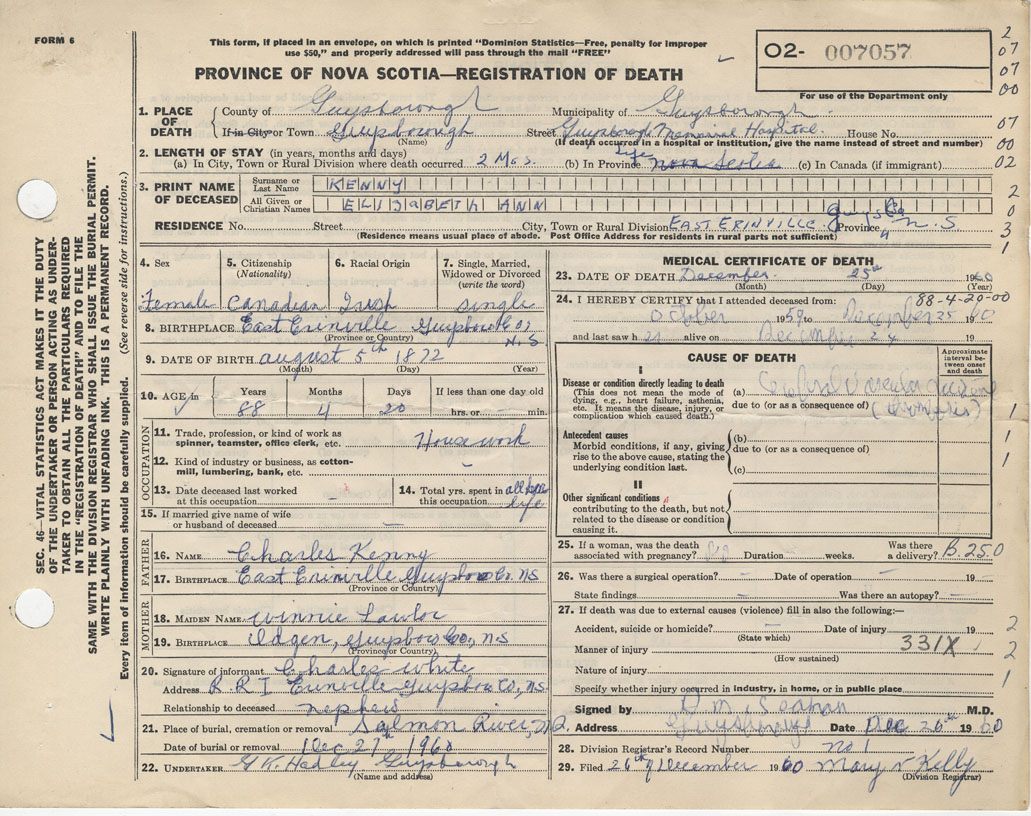 FORM 6
This form, if placed in an envelope, on which is printed "Dominion Statistics—Free, penalty for improper
use $50," and properly addressed will pass through the mail "FREE"
PROVINCE OF NOVA SCOTIA—REGISTRATION OF DEATH
O2- 007057
For use of the Department only
2
07
07
00
07
00
02
2
0
3
1
SEC. 46—VITAL STATISTICS ACT MAKES IT THE DUTY
OF THE UNDERTAKER OR PERSON ACTING AS UNDER-
TAKER TO OBTAIN ALL THE PARTICULARS REQUIRED
IN THE "REGISTRATION OF DEATH" AND TO FILE THE
SAME WITH THE DIVISION REGISTRAR WHO SHALL ISSUE THE BURIAL PERMIT.
WRITE PLAINLY WITH UNFADING INK. THIS IS A PERMANENT RECORD.
Every item of information should be carefully supplied. (See reverse side for instructions.)
1. PLACE OF DEATH County of Guysborough Municipality of Guysborough
If in City or Town Guysborough Street Guysborough Memorial Hospital. House No.
(Name) (If death occurred in a hospital or institution, give the name instead of street and number)
2. LENGTH OF STAY (in years, months and days)
(a) In City, Town or Rural Division where death occurred 2 Mos. (b) In Province Life Nova Scotia (c) In Canada (if immigrant)
3. PRINT NAME OF DECEASED Surname or Last Name KENNY
All Given or Christian Names ELIZABETH ANN
RESIDENCE No. Street City, Town or Rural Division EAST ERINVILLE Guys Co Province N.S
(Residence means usual place of abode. Post Office Address for residents in rural parts not sufficient)
4. Sex 5. Citizenship (Nationality) 6. Racial Origin 7. Single, Married, Widowed or Divorced (write the word)
Female Canadian Irish single
8. BIRTHPLACE East Erinville Guysboro Co, N.S
(Province or Country)
9. DATE OF BIRTH august 5th 1872
(Month) (Day) (Year)
10. AGE in Years Months Days If less than one day old
88 4 20 hrs. or min.
OCCUPATION
11. Trade, profession, or kind of work as spinner, teamster, office clerk, etc. Housework
12. Kind of industry or business, as cotton-mill, lumbering, bank, etc. -
13. Date deceased last worked at this occupation -
14. Total yrs. spent in this occupation all her life
15. If married give name of wife or husband of deceased —
FATHER
16. NAME Charles Kenny
17. BIRTHPLACE East Erinville Guysboro Co. N.S
(Province or Country)
MOTHER
18. MAIDEN NAME Winnie Lawlor
19. BIRTHPLACE Ogden, Guysboro Co., N.S
(Province or Country)
20. Signature of informant Charles White
Address R.R 1 Erinville Guysboro Co, N.S.
Relationship to deceased nephew
21. Place of burial, cremation or removal Salmon River,
Date of burial or removal Dec 27th 1960
22. UNDERTAKER G K. Hadley Guysborough
(Name and address)
MEDICAL CERTIFICATE OF DEATH
23. DATE OF DEATH December 25th 1960
(Month) (Day) (Year)
88-4-20-00
24. I HEREBY CERTIFY that I attended deceased from:
October 1959 to December 25 1960
and last saw h er alive on December 24 19
CAUSE OF DEATH
Approximate interval between onset and death
I
Disease or condition directly leading to death
(This does not mean the mode of dying, e.g., heart failure, asthenia, etc. It means the disease, injury, or complication which caused death.)
(a) Cerebral Vascular accident
due to (or as a consequence of) (thrombosis)
1
Antecedent causes
Morbid conditions, if any, giving rise to the above cause, stating the underlying condition last.
(b)
due to (or as a consequence of)
(c)
1
1
II
Other significant conditions
contributing to the death, but not related to the disease or condition causing it.
25. If a woman, was the death associated with pregnancy? No Duration weeks. Was there a delivery? B.250
26. Was there a surgical operation? - Date of operation - 19
State findings - Was there an autopsy? -
27. If death was due to external causes (violence) fill in also the following:—
Accident, suicide or homicide? - Date of injury 19
(State which)
Manner of injury 331X
(How sustained)
Nature of injury
Specify whether injury occurred in industry, in home, or in public place
2
2
1
Signed by M.D.
Address Guysborough Date Dec 26th 1960
28. Division Registrar's Record Number no 1
29. Filed 26th of December 1960 Mary Kelly
(Division Registrar)